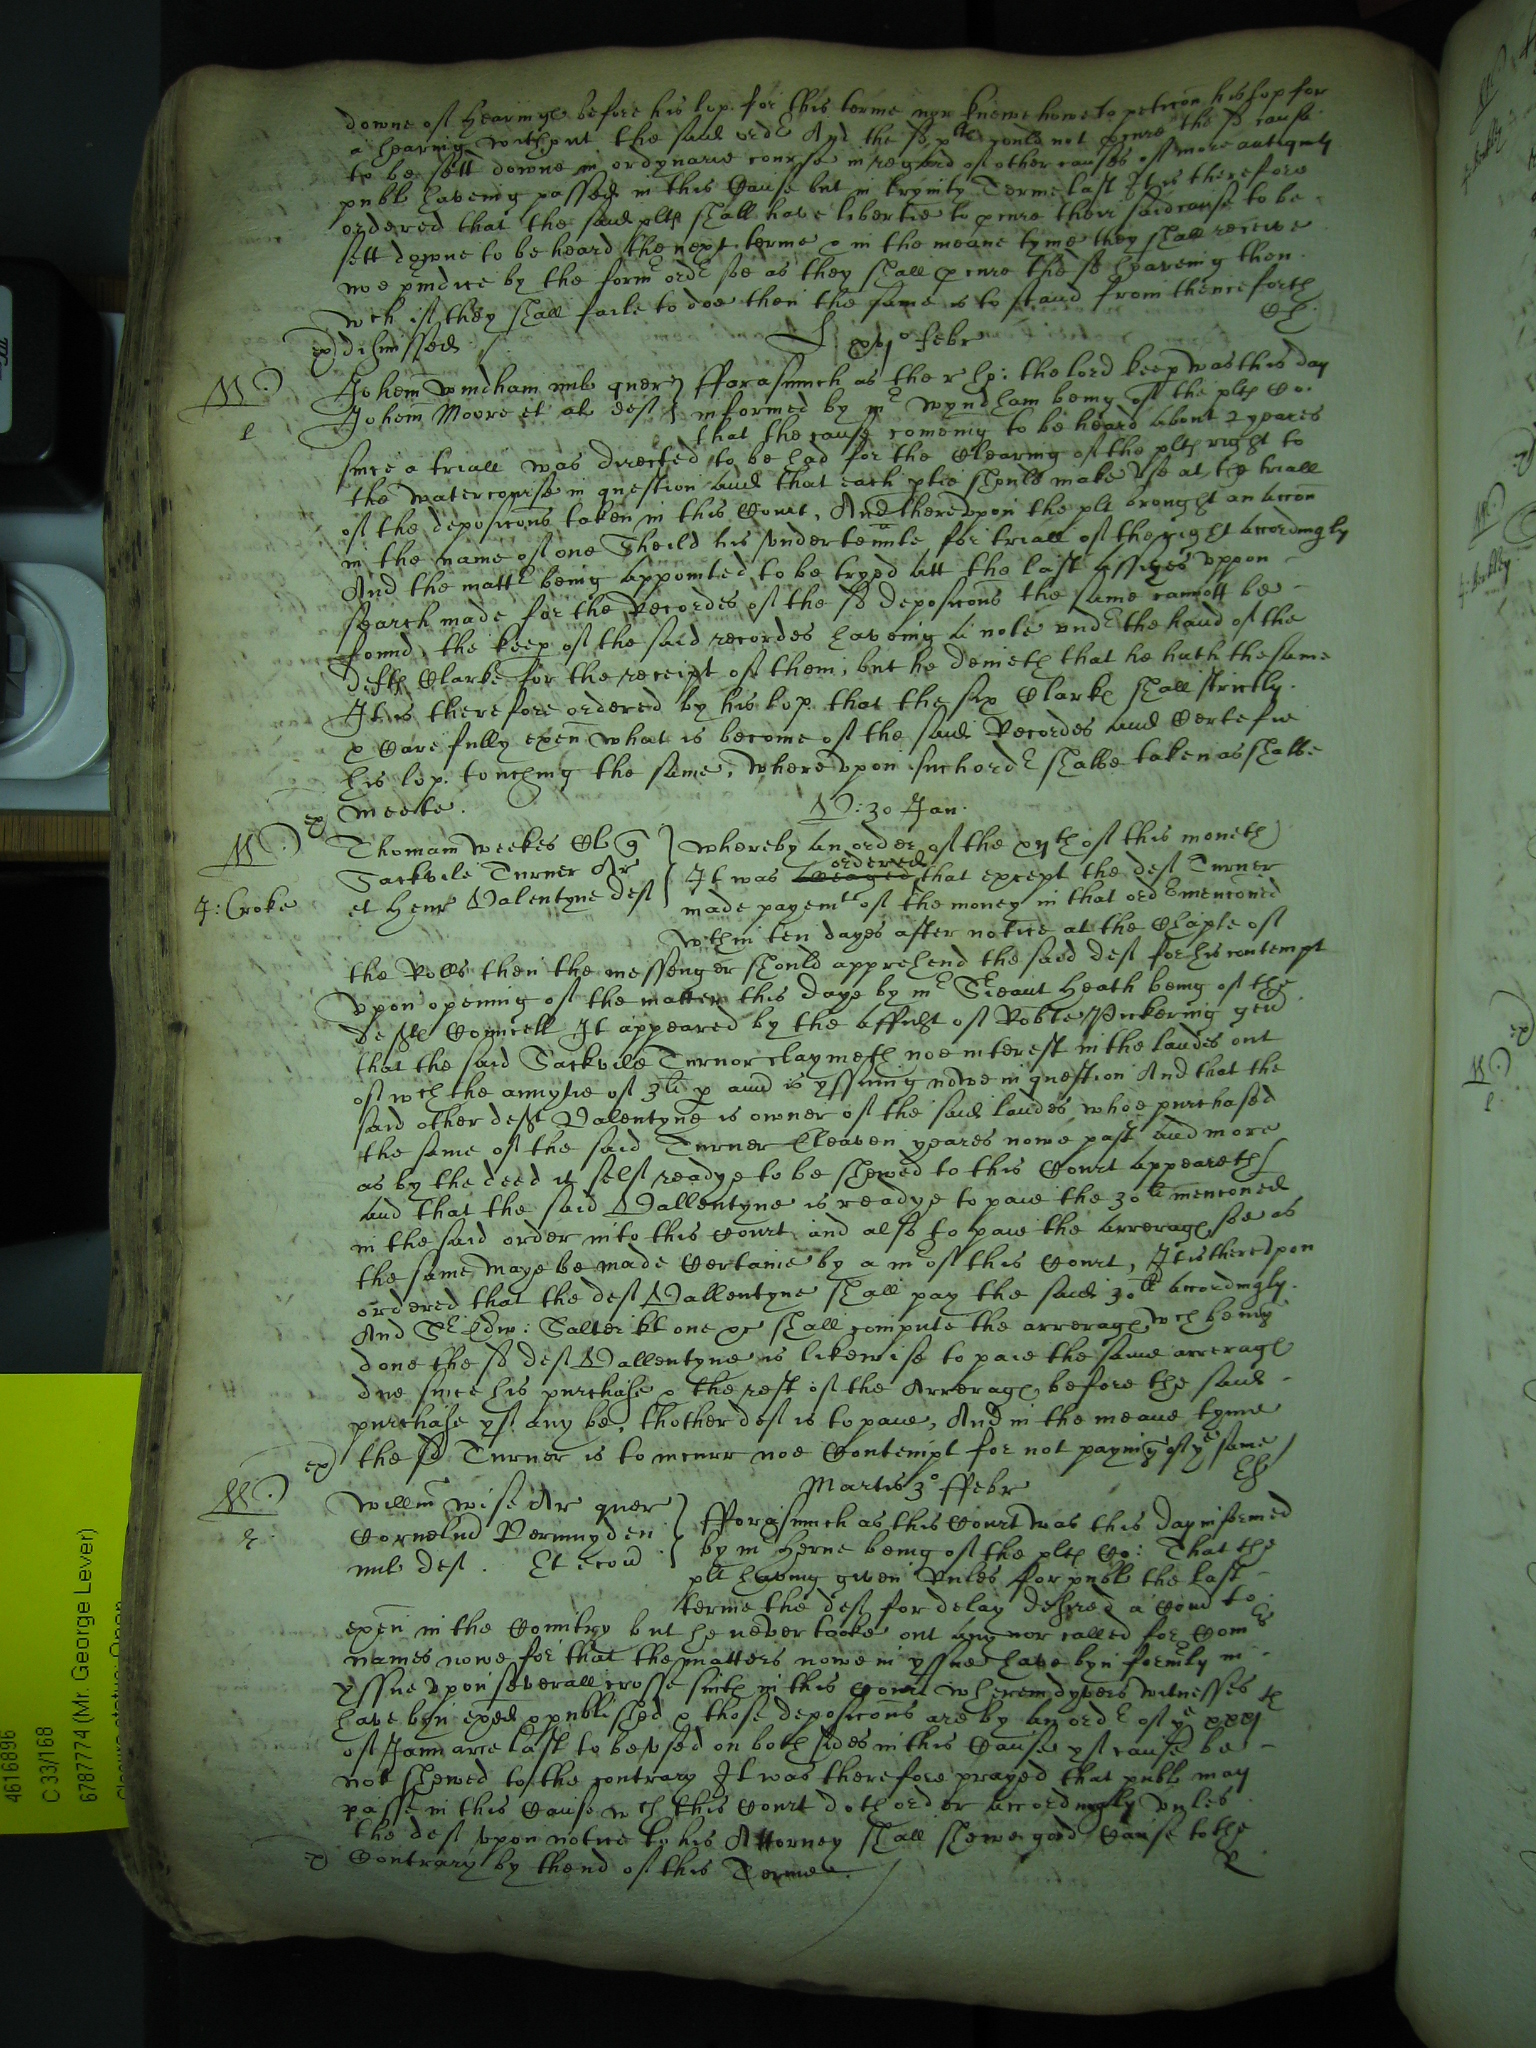 downe of hearings before his lop. for this terme nor knewe howe to peticon his lop for
a hearing without the said ordr And the sd plts could not pcure the sd cause
to be sett downe in ordynarie course in regard of other causes of more antiquity
publ haveing passed in this Cause but in Trynity Terme last It is therefore
ordered that the said plts shall have libertie to pcure their said cause to be
sett downe to be heard the next terme & in the meane tyme they shall receive
noe pindice by the formr ordr soe as they shall pcure the sd heareing then
wch if they shall faile to doe then the same is to stand from thenceforth
dismissed
xvjo Febr
Johem Windham mil quer fforasmuch as the r hp: the lord keep was this day
Johem Moore et al deft informed by mr Wyndham being of the plts Co.
that the cause comeing to be heard about 2 yeares
since a triall was directed to be had for the Clearing of the plts right to
the watercourse in question and that each ptie should make use at the triall
of the deposicons taken in this Court, And thereupon the plt brought an accon
in the name of one Sheild his undertennte for triall of the right accordingly
And the mattr being appointed to be tryed att the last assizes uppon
search made for the Recordes of the sd deposicons the same cannott be
found, the keep of the said recordes haveing a note undr the hand of the
defts Clarke for the receipt of them, but he denieth that he hath the same
It is therefore ordered by his lop. that the six Clarks shall strictly
& Carefully exen what is become of the said Recordes and Certefie
his lop. touching the same, whereupon such ordr shalbe taken as shalbe
meete.
V: 30 Jan.
Thomam Weekes Cl q whereby an order of the xvijth of this moneth
Sackvile Turner Ar It was ordered that except the deft Turner
J: Croke
et Henr Valentyne deft made payemt of the money in that ordr menconed
wthin ten dayes after notice at the Chaple of
the Rolls then the messenger should apprehend the said deft for his contempt
upon opening of the matter this daye by mr Srieant Heath being of the
defts Councell It appeared by the affidt of Robte Pickering gen
that the said Sackvile Turnor claymeth noe interest in the landes out
of wch the annytie of 3li p ann is yssuing nowe in question And that the
said other deft Valentyne is owner of the said landes, whoe purchased
the same of the said Turner Eleaven yeares nowe past and more
as by the deed it self readye to be shewed to this Court appeareth
and that the said Vallentyne is readye to paie the 30li menconed
in the said order into this Court and also to paie the arrerags soe as
the same maye be made Certaine by a mr of this Court, It is thereupon
ordered that the deft Vallentyne shall pay the said 30li accordingly.
And Sr Edw: Salter kt one &c shall compute the arrerags wch being
done the sd deft Vallentyne is likewise to paie the same arrerags
due since his purchase & the rest of the Arrerags before the said
purchase yf any be, thother deft is to paie, And in the meane tyme
the sd Turner is to incurr noe Contempt for not paying of ye same
Martis 3o ffebr
Willm Wise Ar quer fforasmuch as this Court was this day informed
Cornelium Vermuyden by mr Herne being of the plts Co: That the
mil deft. Et econ plt having given Rules for publ the last
terme the deft for delay desired a Com to
exen in the Countrey but he never tooke out any nor called for Comrs
names nowe for that the matters nowe in yssue have byn formrly in
yssue upon severall crosse suits in this Court wherein dyvers witnesses
have byn exed & published & those deposicons are by an ordr of ye xxxjth
of Januarie last to be used on both sides in this Cause yf cause be
not shewed to the contrary It was therefore prayed that publ may
passe in this Cause wch this Court doth order accordingly unles
the deft upon notice to his Attorney shall shewe good Cause to the
Contrary by thend of this Terme.
4616896
C 33/168
6787774 (Mr. George Lever)